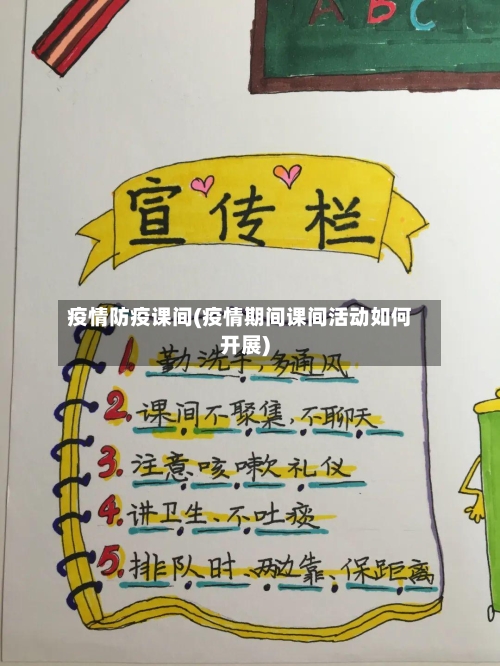 A B C
宣传栏
疫情防疫课间(疫情期间课间活动如何
开展)
1. 勤洗手,多通风
2. 课间不聚集,不聊天
3. 注意咳嗽礼仪
4. 讲卫生、不吐痰
5. 排队时、两边靠、保距离